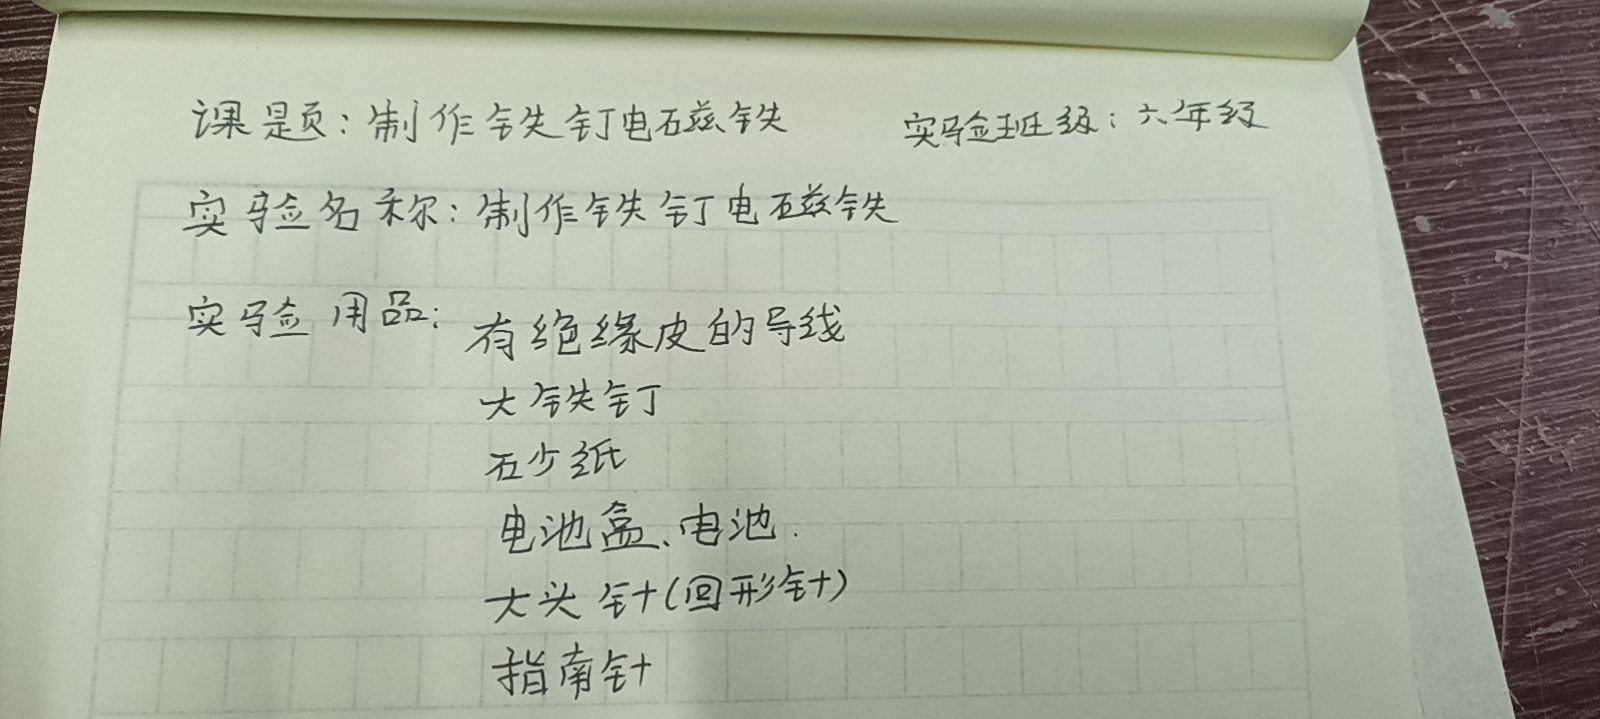 课题：制作铁钉电磁铁 实验班级：六年级
实验名称：制作铁钉电磁铁
实验用品：有绝缘皮的导线
大铁钉
砂纸
电池盒、电池.
大头针(回形针)
指南针